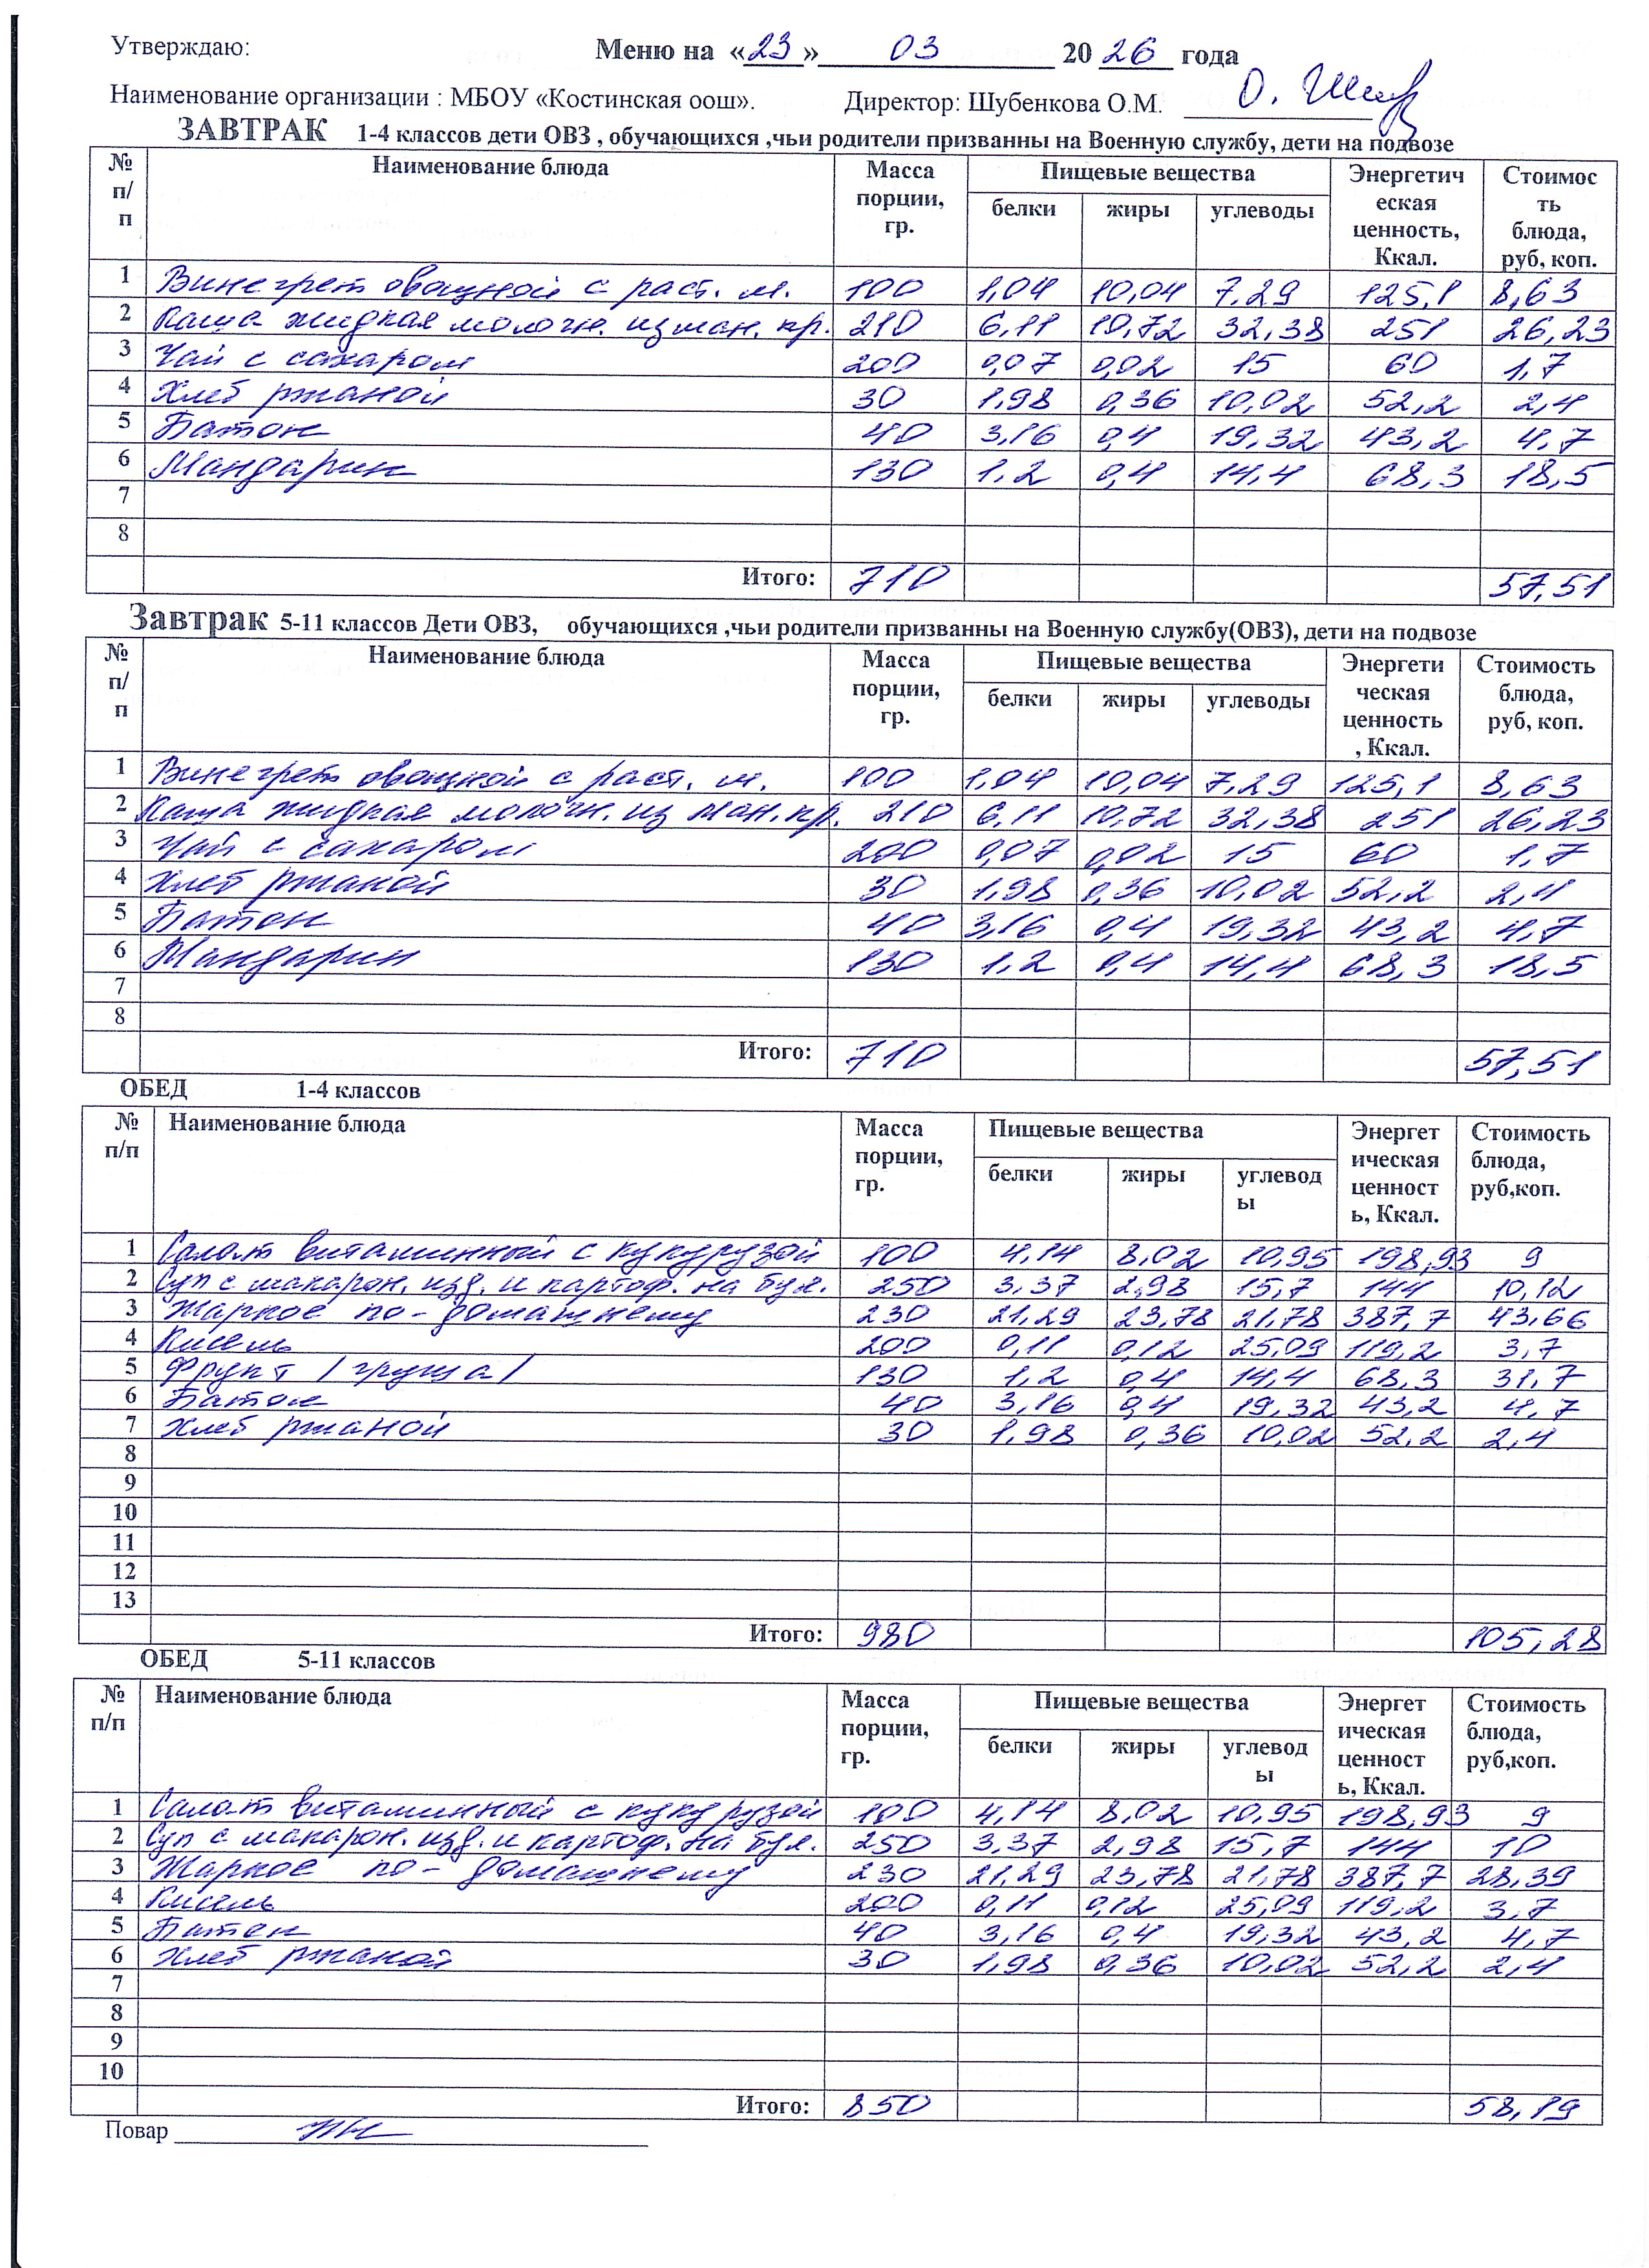 Утверждаю:
Меню на «23» 03 2026 года
Наименование организации : МБОУ «Костинская оош». Директор: Шубенкова О.М.
ЗАВТРАК 1-4 классов дети ОВЗ , обучающихся ,чьи родители призванны на Военную службу, дети на подвозе
№ п/п Наименование блюда Масса порции, гр. Пищевые вещества Энергетическая ценность, Ккал. Стоимость блюда, руб, коп.
белки жиры углеводы
1 Винегрет овощной с раст. м. 100 1,04 10,04 7,29 125,1 8,63
2 Каша жидкая молочн. из ман. кр. 210 6,11 10,72 32,38 251 26,23
3 Чай с сахаром 200 0,07 0,02 15 60 1,7
4 Хлеб ржаной 30 1,98 0,36 10,02 52,2 2,4
5 Батон 40 3,16 0,4 19,32 43,2 4,7
6 Мандарин 130 1,2 0,4 14,4 68,3 18,5
7
8
Итого: 710 57,51
Завтрак 5-11 классов Дети ОВЗ, обучающихся ,чьи родители призванны на Военную службу(ОВЗ), дети на подвозе
№ п/п Наименование блюда Масса порции, гр. Пищевые вещества Энергетическая ценность, Ккал. Стоимость блюда, руб, коп.
белки жиры углеводы
1 Винегрет овощной с раст. м. 100 1,04 10,04 7,29 125,1 8,63
2 Каша жидкая молочн. из ман. кр. 210 6,11 10,72 32,38 251 26,23
3 Чай с сахаром 200 0,07 0,02 15 60 1,7
4 Хлеб ржаной 30 1,98 0,36 10,02 52,2 2,4
5 Батон 40 3,16 0,4 19,32 43,2 4,7
6 Мандарин 130 1,2 0,4 14,4 68,3 18,5
7
8
Итого: 710 57,51
ОБЕД 1-4 классов
№ п/п Наименование блюда Масса порции, гр. Пищевые вещества Энергетическая ценность, Ккал. Стоимость блюда, руб,коп.
белки жиры углеводы
1 Салат витаминный с кукурузой 100 4,14 8,02 10,95 198,93 9
2 Суп с макарон. изд. и картоф. на бул. 250 3,37 2,98 15,7 144 10,12
3 Жаркое по-домашнему 230 21,29 23,78 21,78 387,7 43,66
4 Кисель 200 0,11 0,12 25,09 119,2 3,7
5 Фрукт /груша/ 130 1,2 0,4 14,4 68,3 31,7
6 Батон 40 3,16 0,4 19,32 43,2 4,7
7 Хлеб ржаной 30 1,98 0,36 10,02 52,2 2,4
8
9
10
11
12
13
Итого: 980 105,28
ОБЕД 5-11 классов
№ п/п Наименование блюда Масса порции, гр. Пищевые вещества Энергетическая ценность, Ккал. Стоимость блюда, руб,коп.
белки жиры углеводы
1 Салат витаминный с кукурузой 100 4,14 8,02 10,95 198,93 9
2 Суп с макарон. изд. и картоф. на бул. 250 3,37 2,98 15,7 144 10
3 Жаркое по-домашнему 230 21,29 23,78 21,78 387,7 28,39
4 Кисель 200 0,11 0,12 25,09 119,2 3,7
5 Батон 40 3,16 0,4 19,32 43,2 4,7
6 Хлеб ржаной 30 1,98 0,36 10,02 52,2 2,4
7
8
9
10
Итого: 850 58,19
Повар